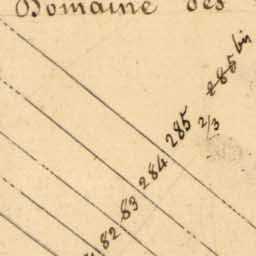 Domaine des
285 bis
285
2/3
284
83
82